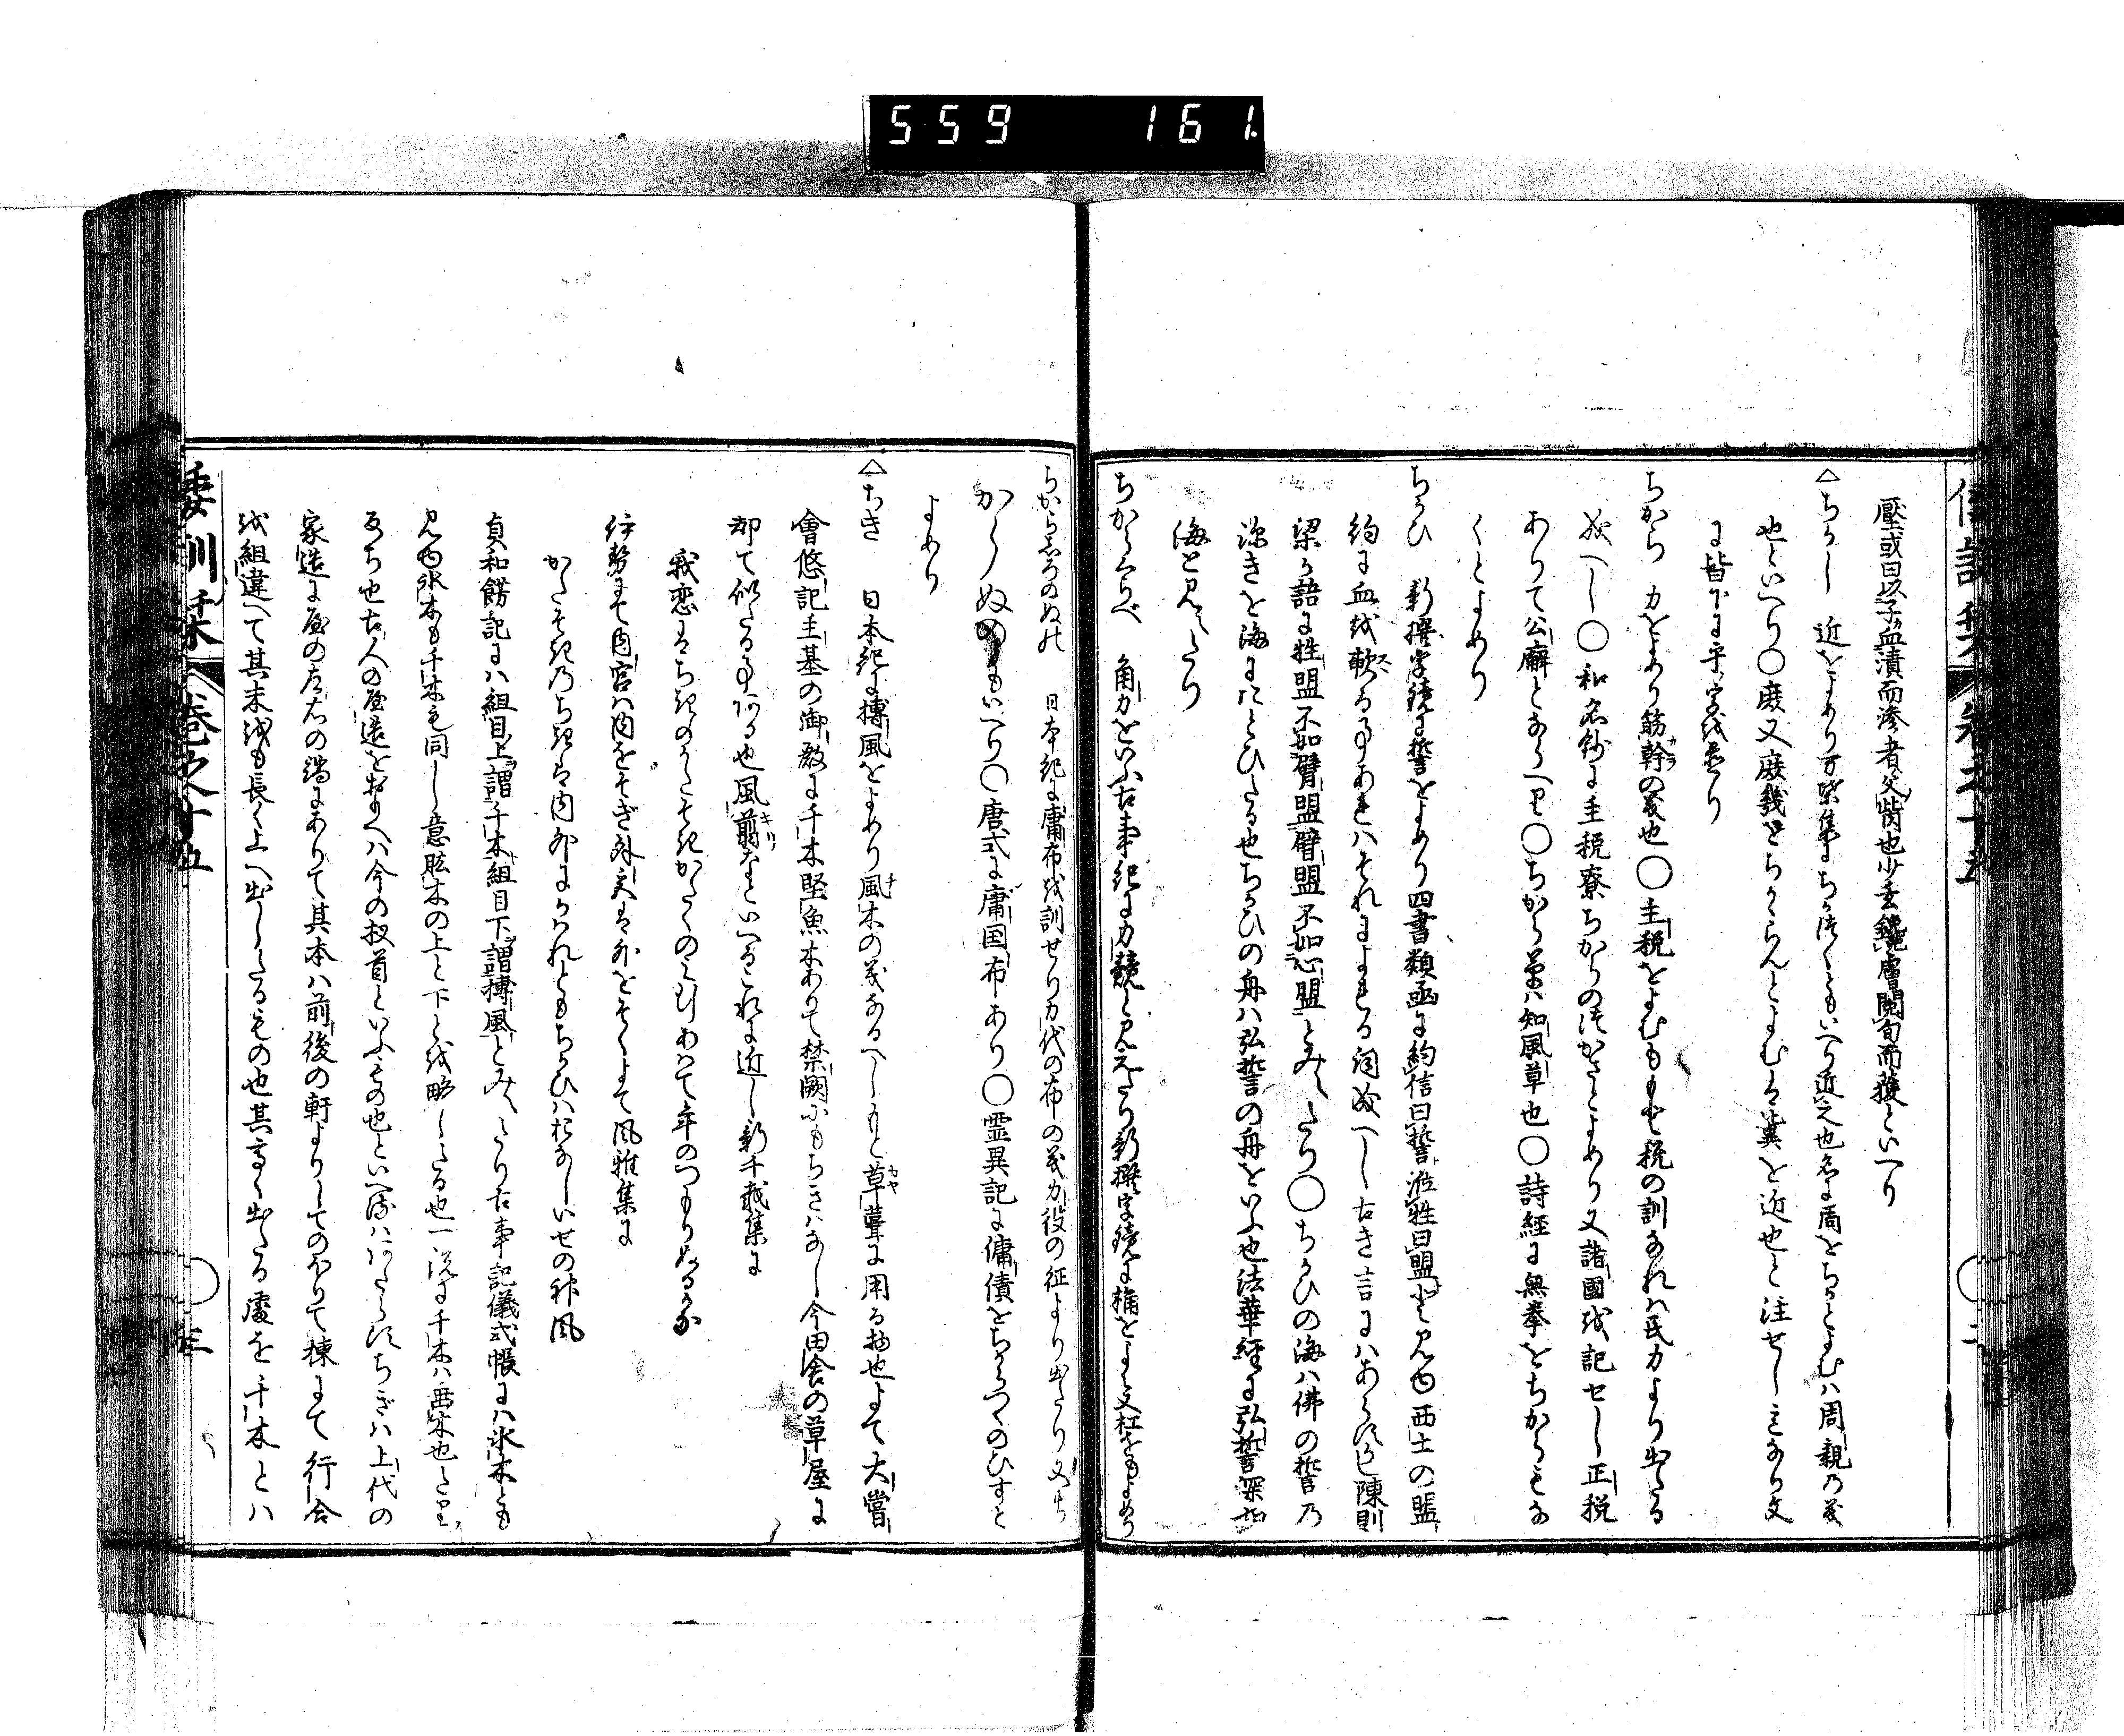 559 161
壓或曰以子血漬而滲者父骨也少去鑱膚閲旬而獲といへり
△ちかし 近をよめり万葉集にちかつくともいへり近之也名に周をちかとよむハ周親乃義
也といへり〇庶又庶幾をちかゝらんとよむる冀を近也と注せし意なり文
に皆下に乎字を置り
ちから 力をよめり筋幹の義也〇主税をよむももと税の訓なれハ民力より出たる
成へし〇和名鈔に主税寮ちからのつかさとよめり又諸國を記セし正税
ありて公廨とならへり〇ちから草ハ知風草也〇詩経に無拳をちからもな
くとよめり
ちかひ 新撰字鏡に誓をよめり四書類函に約信曰誓涖牲曰盟と見ゆ西土の盟
約に血を歃る事あれハそれによれる詞成へし古き言にハあらすかし陳則
梁か語に牲盟不如臂盟臂盟不如心盟とみえたり〇ちかひの海ハ佛の誓乃
深きを海にたとひたる也ちかひの舟ハ弘誓の舟をいふ也法華経に弘誓深如
海と見えたり
ちからくらべ 角力をいふ古事紀に力競と見えたり新撰字鏡に桷をよめり又杠をもよめり
ちからしろのぬの 日本紀に庸布を訓せり力代の布の義力役の征より出たり又ち
からぬのともいへり〇唐式に庸国布あり〇霊異記に傭債をちからつくのひすと
よめり
△ちぎ 日本紀に搏風をよめり風木の義なるへしもと草葺に用る物也よて大嘗
會悠記主基の御殿に千木堅魚木ありて禁闕にもちぎハなし今田舎の草屋に
却て似たる事ある也風剪なといへるこれに近し新千載集に
我恋はちきのかたそきかたくのみ行あはて年のつもりぬるかな
伊勢にて内宮ハ内をそぎ外宮は外をそくよて風雅集に
かたそきのちきは内外にかはれともちかひハおなしいせの神風
貞和餝記にハ組目上謂千木組目下謂搏風とみえたり古事記儀式帳にハ氷木とも
見ゆ氷木も千木も同し意肱木の上と下とを略したる也一説に千木ハ垂木也といふ
家造に屋の左右の端にありて其本ハ前後の軒よりしてのぼりて棟にて行合
を組違へて其末をも長く上へ出したるもの也其高く出たる處を千木とハ
倭訓栞 千木 巻之十五 三